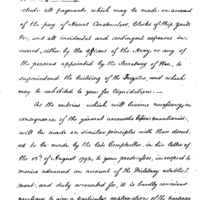 clude all payments which may be made on account
of the pay of Naval Constructors, Clerks of Ship Yards
&c., and all incidental and contingent expences in-
curred, either by the officers of the Navy, or any of
the persons appointed by the Secretary of War, to
superintend the building of the Frigates, and which
may be exhibited to you for liquidation.
As the entries which will become necessary, in
consequence of the general accounts before mentioned,
will be made on similar principles with those direct-
ed to be made by the late Comptroller, in his letter of
the 13th of August 1792, to your predecessor, in respect to
monies advanced on account of the Military establish-
ment, and duly accounted for, it is hardly conceived
necessary to give a particular explanation of the purpose